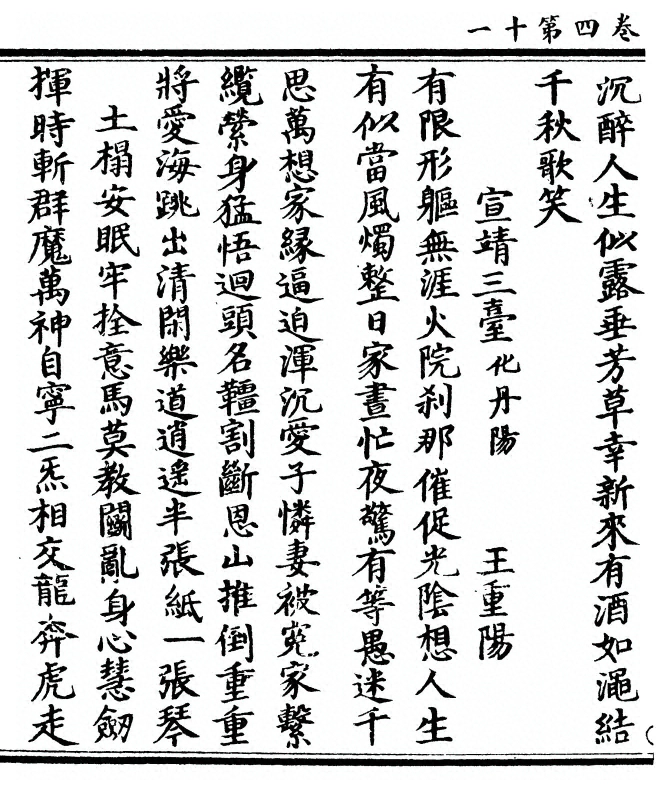 卷四第十一
沉醉人生似露垂芳草幸新來有酒如澠結
千秋歌笑
宣靖三臺 化丹陽 王重陽
有限形軀無涯火院刹那催促光陰想人生
有似當風燭整日家晝忙夜驚有等愚迷千
思萬想家緣逼迫渾沉愛子憐妻被寃家繫
纜縈身猛悟迴頭名韁割斷恩山推倒重重
將愛海跳出清閑樂道逍遙半張紙一張琴
土榻安眠牢拴意馬莫教闖亂身心慧劒
揮時斬群魔萬神自寧二炁相交龍奔虎走